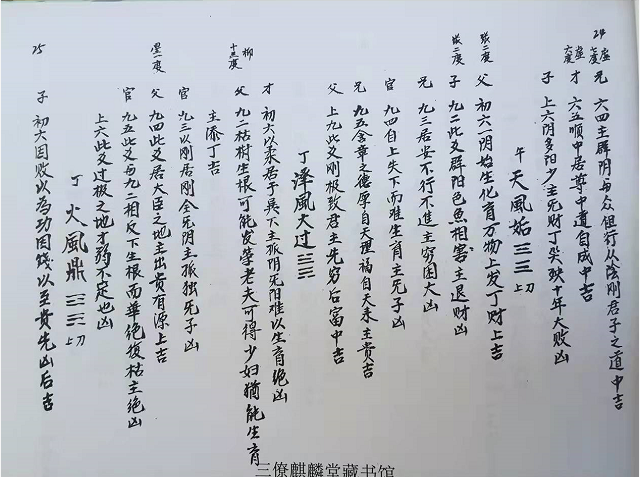 24
虚七度 兄 六四主群阴与众但行从阴刚君子之道中吉
虚六度 才 六五顺中居尊中道自成中吉
子 上六阴多阳少主死财丁尖殃十年大败凶
午 天風姤 上刀
张二度 父 初六一阴始生化育万物上发丁财上吉
张二度 子 九二此爻辟阳色魚相害主退财凶
兄 九三居安不行不進主穷困大凶
官 九四自上失下而难生育主死子凶
兄 九五含章之德厚自天理福自天来主贵吉
父 上九此爻刚极致君主先穷后富中吉
丁 澤風大过
才 初六以柔居于巽下主孤阴死阳难以生育绝凶
柳十三度 父 九二枯树生根可能发孛老夫可得少妇猶能生育
主添丁吉
官 九三以刚居刚全无阴主孤独死子凶
星一度 父 九四此爻居大臣之地主出贵有源上吉
官 九五此爻与九二相反下生根而華绝復枯主绝凶
上六此爻过极之地才弱不定也凶
丁 火風鼎 上刀
25 子 初六因败以為功因贱以至貴先凶后吉
三僚麒麟堂藏书馆